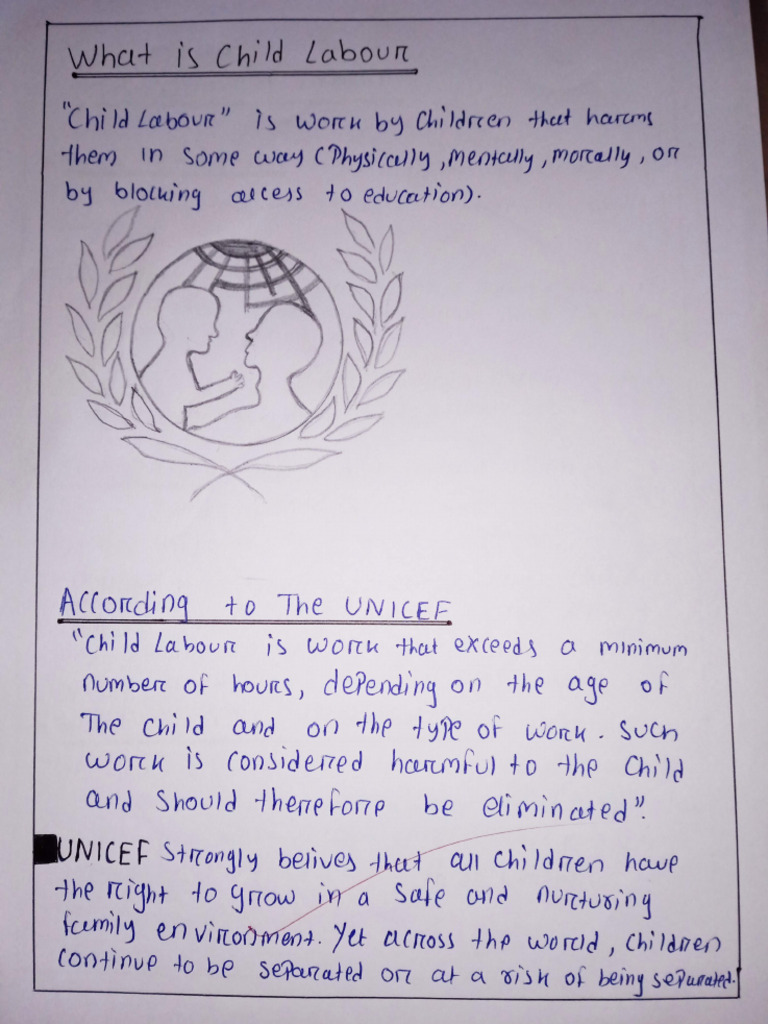 What is Child Labour
"Child Labour" is work by Children that harms
them in some way (Physically, mentally, morally, or
by blocking access to education).
According to The UNICEF
"Child Labour is work that exceeds a minimum
number of hours, depending on the age of
The child and on the type of work. Such
work is considered harmful to the Child
and should therefore be eliminated".
UNICEF Strongly belives that all children have
the right to grow in a safe and nurturing
family environment. Yet across the world, children
continue to be separated or at a risk of being separated.